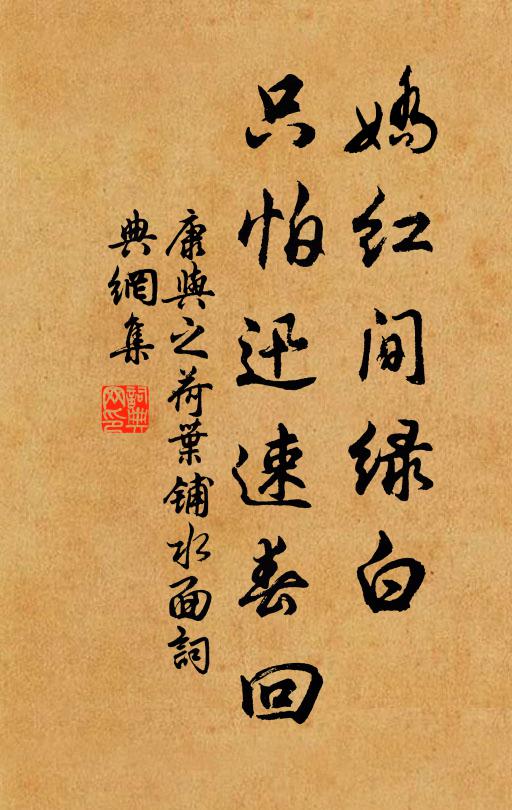 嬌紅間綠白
只怕迅速春回
康與之荷葉鋪水面詞
典網集
詞典網印